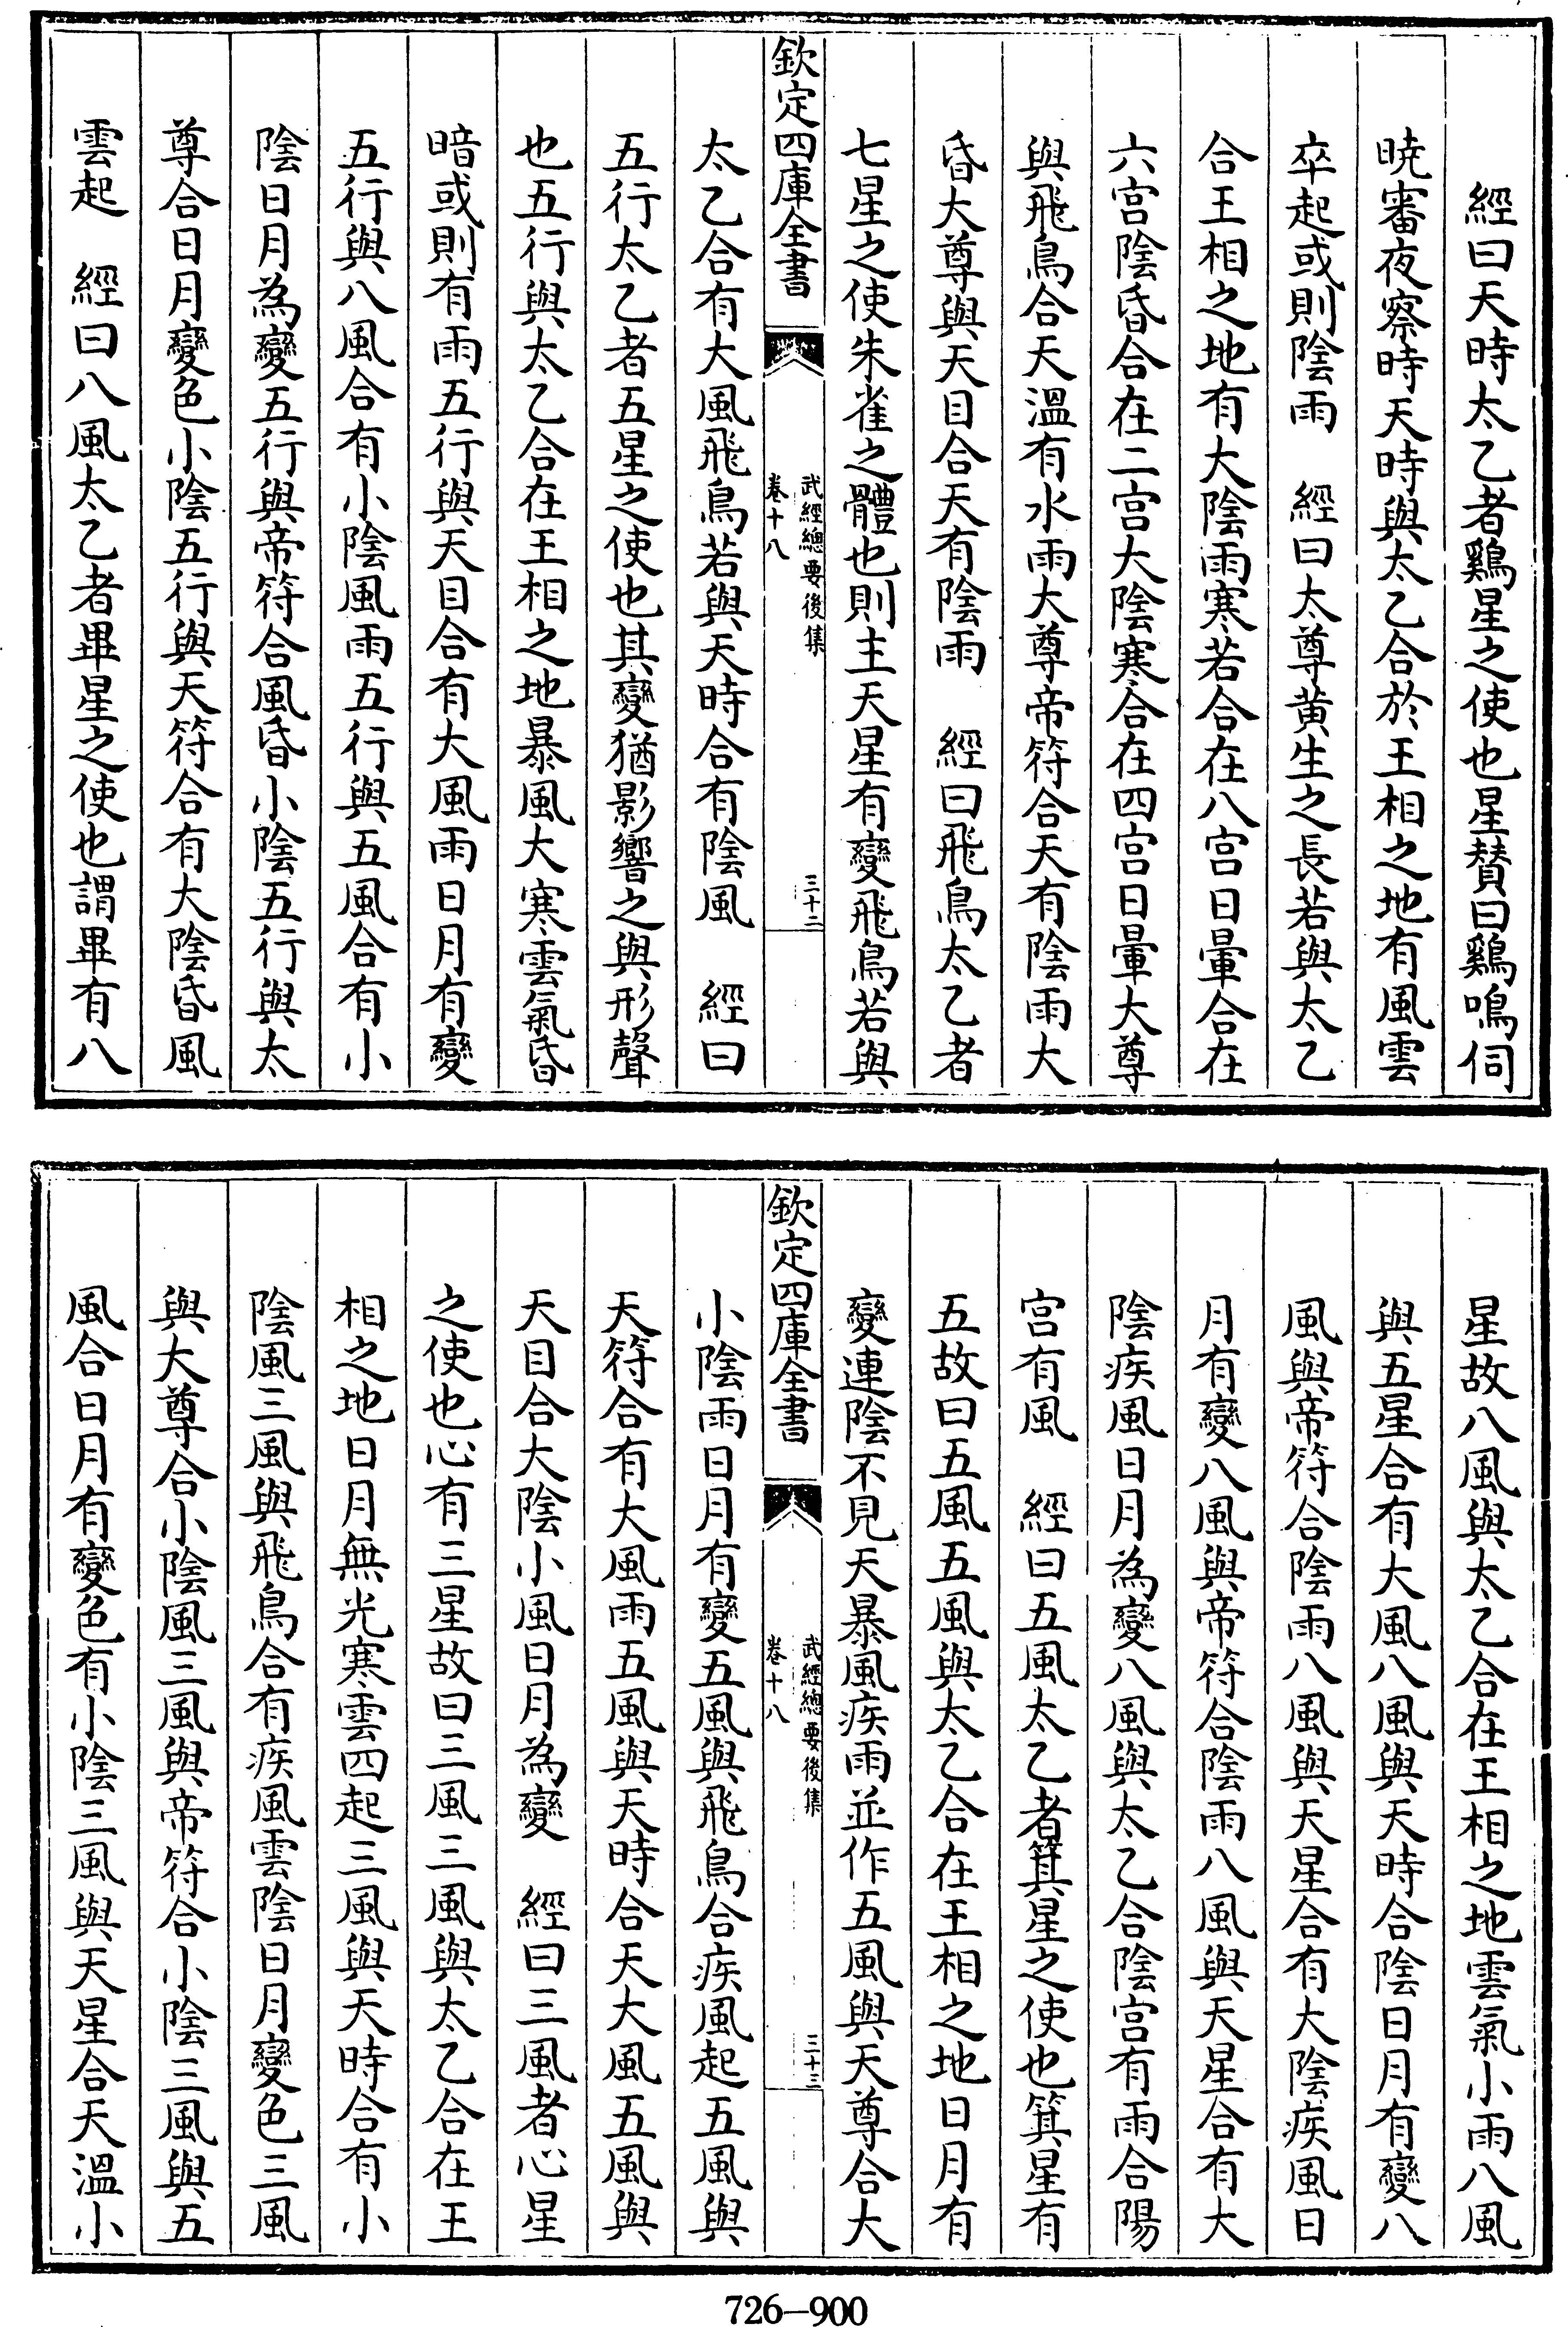 經曰天時太乙者鷄星之使也星賛曰鷄鳴伺
暁審夜察時天時與太乙合於王相之地有風雲
卒起或則隂雨　經曰太尊黄生之長若與太乙
合王相之地有大隂雨寒若合在八宫日暈合在
六宫隂昏合在二宫大隂寒合在四宫日暈大尊
與飛鳥合天溫有水雨大尊帝符合天有隂雨大
昏大尊與天目合天有隂雨　經曰飛鳥太乙者
七星之使朱雀之體也則主天星有變飛鳥若與
欽定四庫全書
武經總要後集
卷十八
三十二
太乙合有大風飛鳥若與天時合有隂風　經曰
五行太乙者五星之使也其變猶影響之與形聲
也五行與太乙合在王相之地暴風大寒雲氣昏
暗或則有雨五行與天目合有大風雨日月有變
五行與八風合有小隂風雨五行與五風合有小
隂日月為變五行與帝符合風昏小隂五行與太
尊合日月變色小隂五行與天符合有大隂昏風
雲起　經曰八風太乙者畢星之使也謂畢有八
星故八風與太乙合在王相之地雲氣小雨八風
與五星合有大風八風與天時合隂日月有變八
風與帝符合隂雨八風與天星合有大隂疾風日
月有變八風與帝符合隂雨八風與天星合有大
隂疾風日月為變八風與太乙合隂宫有雨合陽
宫有風　經曰五風太乙者箕星之使也箕星有
五故曰五風五風與太乙合在王相之地日月有
變連隂不見天暴風疾雨並作五風與天尊合大
欽定四庫全書
武經總要後集
卷十八
三十三
小隂雨日月有變五風與飛鳥合疾風起五風與
天符合有大風雨五風與天時合天大風五風與
天目合大隂小風日月為變　經曰三風者心星
之使也心有三星故曰三風三風與太乙合在王
相之地日月無光寒雲四起三風與天時合有小
隂風三風與飛鳥合有疾風雲隂日月變色三風
與大尊合小隂風三風與帝符合小隂三風與五
風合日月有變色有小隂三風與天星合天溫小
726—900